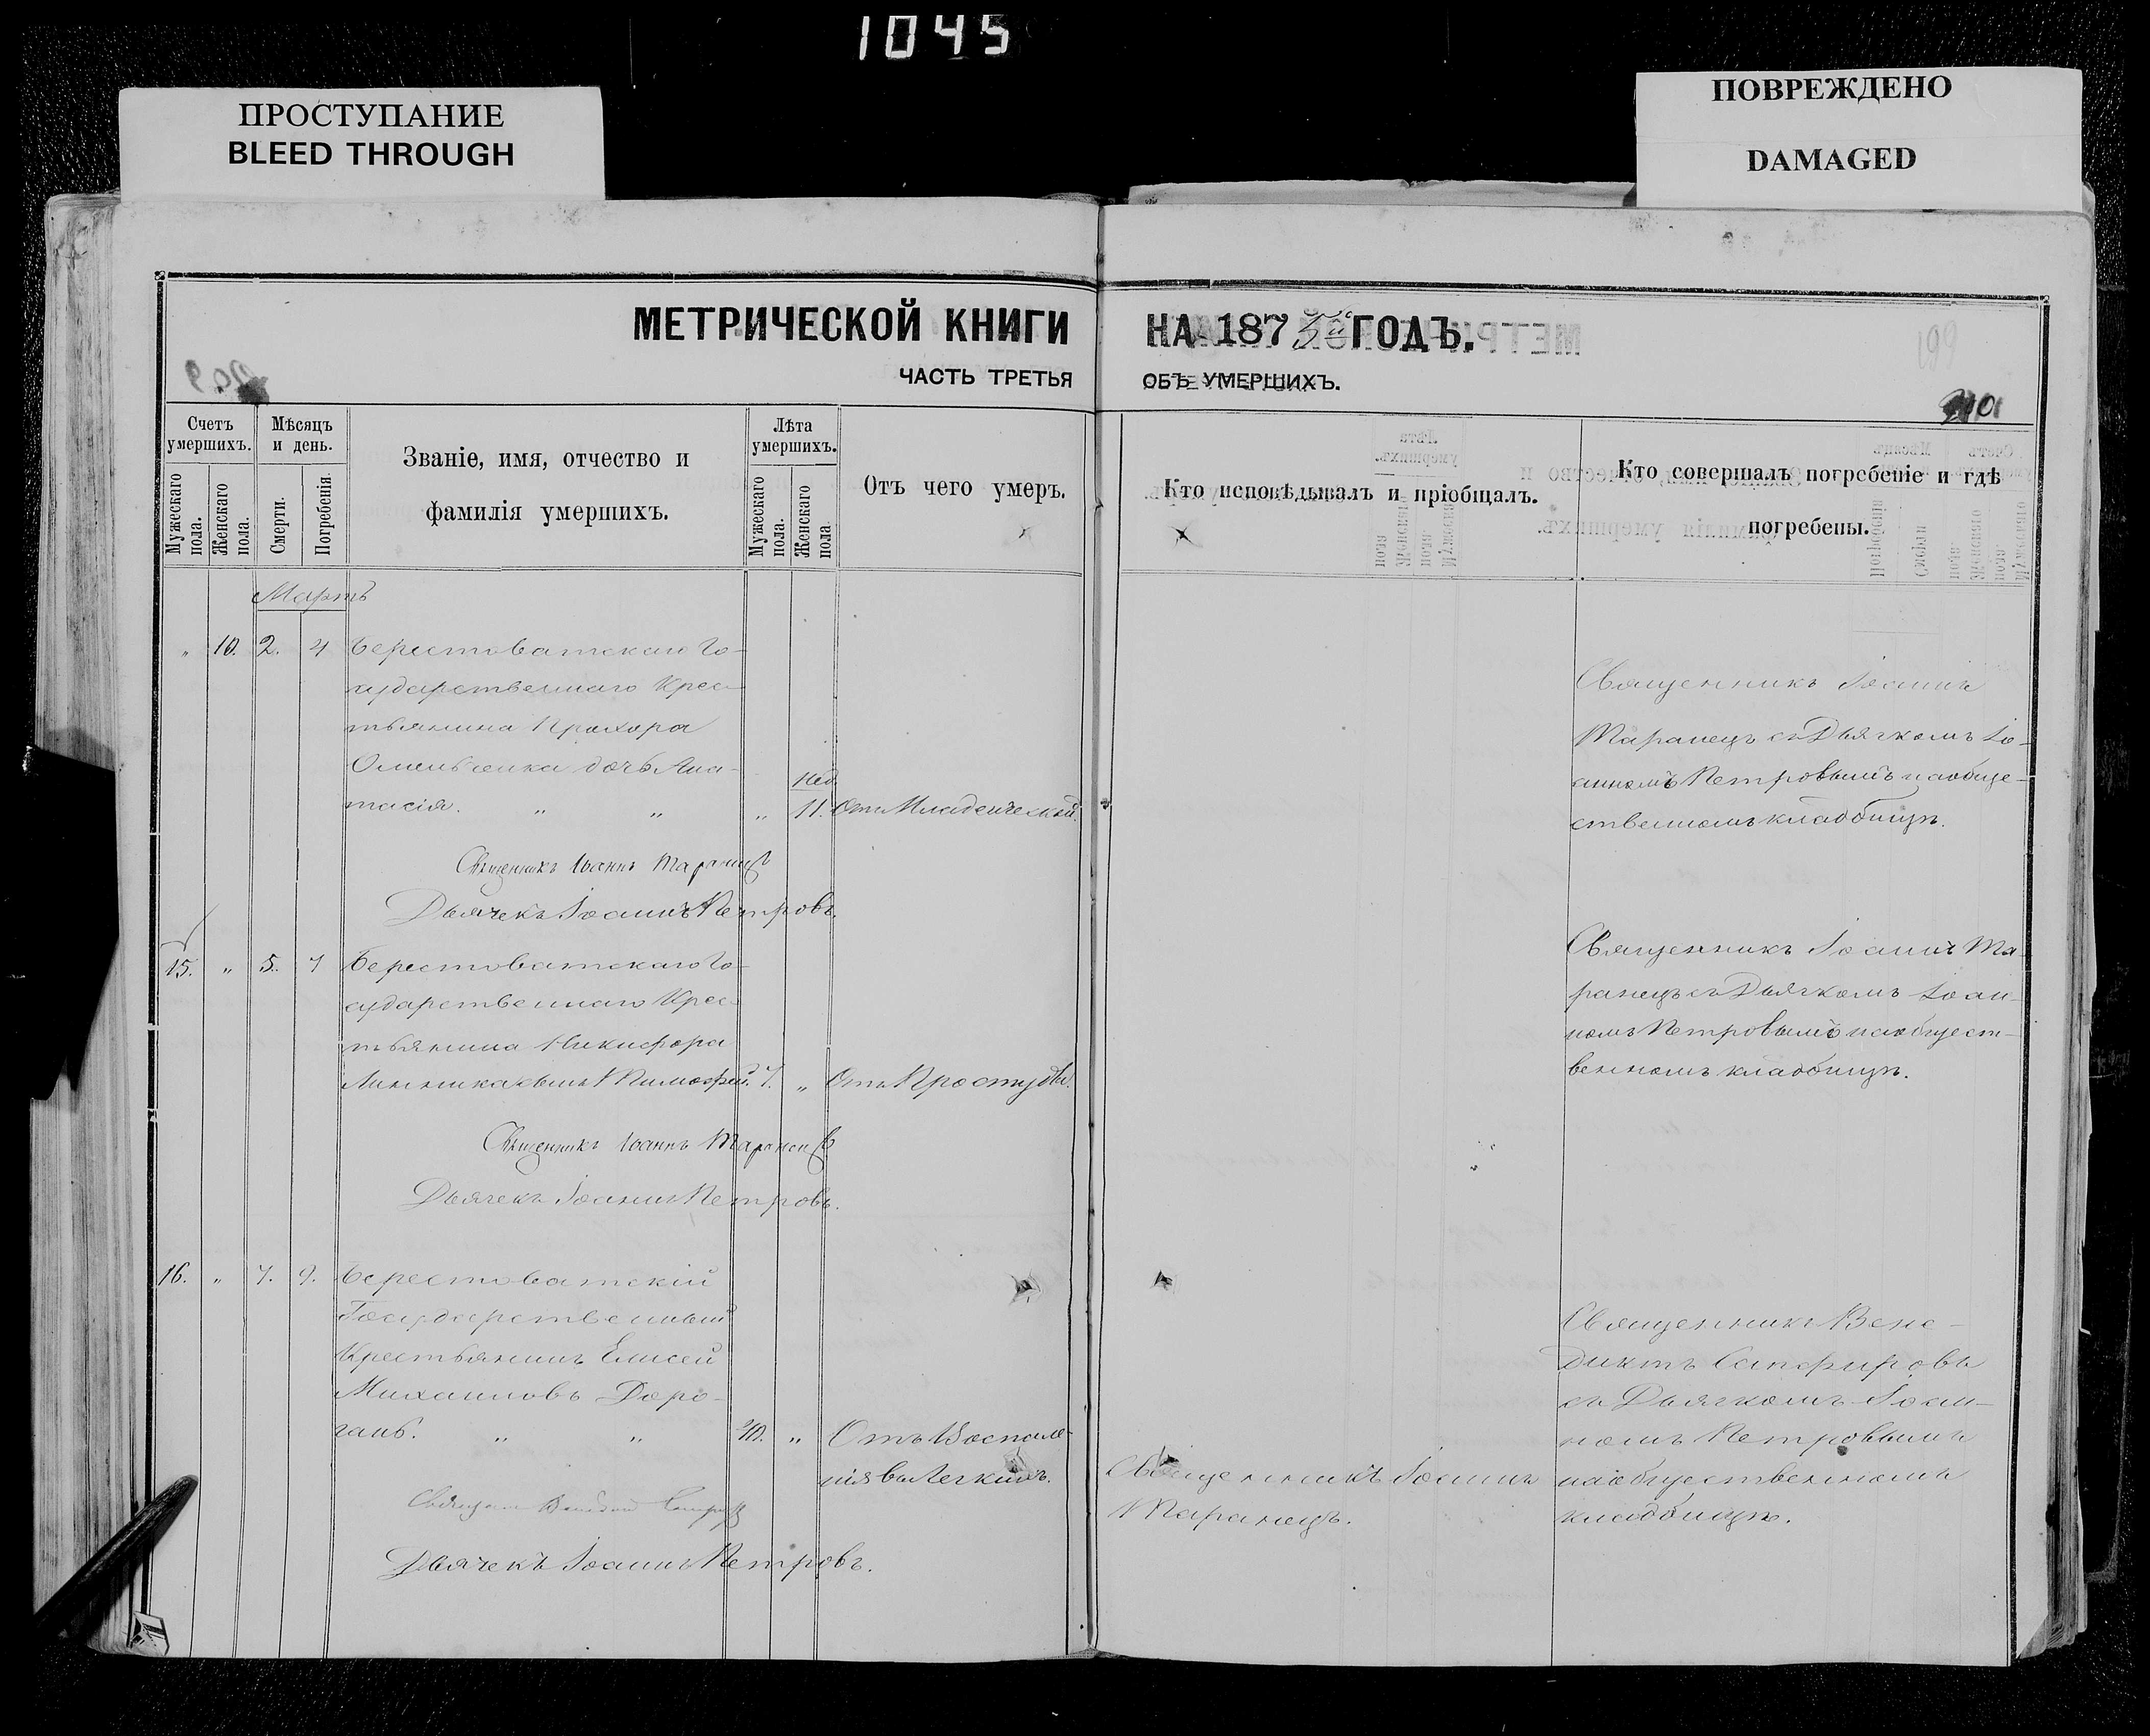 1045
ПРОСТУПАНИЕ
BLEED THROUGH
ПОВРЕЖДЕНО
DAMAGED
МЕТРИЧЕСКОЙ КНИГИ НА 1875й ГОДЪ.
ЧАСТЬ ТРЕТЬЯ ОБЪ УМЕРШИХЪ.
210
Счетъ умершихъ.
Мужескаго пола.
Женскаго пола.
Мѣсяцъ и день.
Смерти.
Погребенія.
Званіе, имя, отчество и
фамилія умершихъ.
Лѣта умершихъ.
Мужескаго пола.
Женскаго пола.
Отъ чего умеръ.
Кто исповѣдывалъ и пріобщалъ.
Кто совершалъ погребеніе и гдѣ
погребены.
Мартъ
„ 10. 2. 4 Берестоватскаго Го-
сударственнаго Крес-
тьянина Прохора
Омельченка дочь Ана-
тасія. „ „ „ нед. 11. Отъ Младенческой.
Священникъ Іоаннъ
Таранецъ съ Дьячкомъ Іо-
анномъ Петровымъ на обще-
ственномъ кладбищѣ.
Священникъ Іоаннъ Таранецъ
Дьячекъ Іоаннъ Петровъ.
15. „ 5. 7 Берестоватскаго Го-
сударственнаго Крес-
тьянина Никифора
Линника сынъ Тимофей. 7. „ Отъ Простуды.
Священникъ Іоаннъ Та-
ранецъ съ Дьячкомъ Іоан-
номъ Петровымъ на общест-
венномъ кладбищѣ.
Священникъ Іоаннъ Таранецъ
Дьячекъ Іоаннъ Петровъ.
16. „ 7. 9. Берестоватскій
Государственный
Крестьянинъ Елисей
Михаиловъ Доро-
гань. „ „ 40. „ Отъ Воспале-
нія въ Легкихъ.
Священникъ Іоаннъ
Таранецъ.
Священникъ Вене-
диктъ Сапфировъ
съ Дьячкомъ Іоан-
номъ Петровымъ
на общественномъ
кладбищѣ.
Священникъ Венедиктъ Сапфировъ
Дьячекъ Іоаннъ Петровъ.